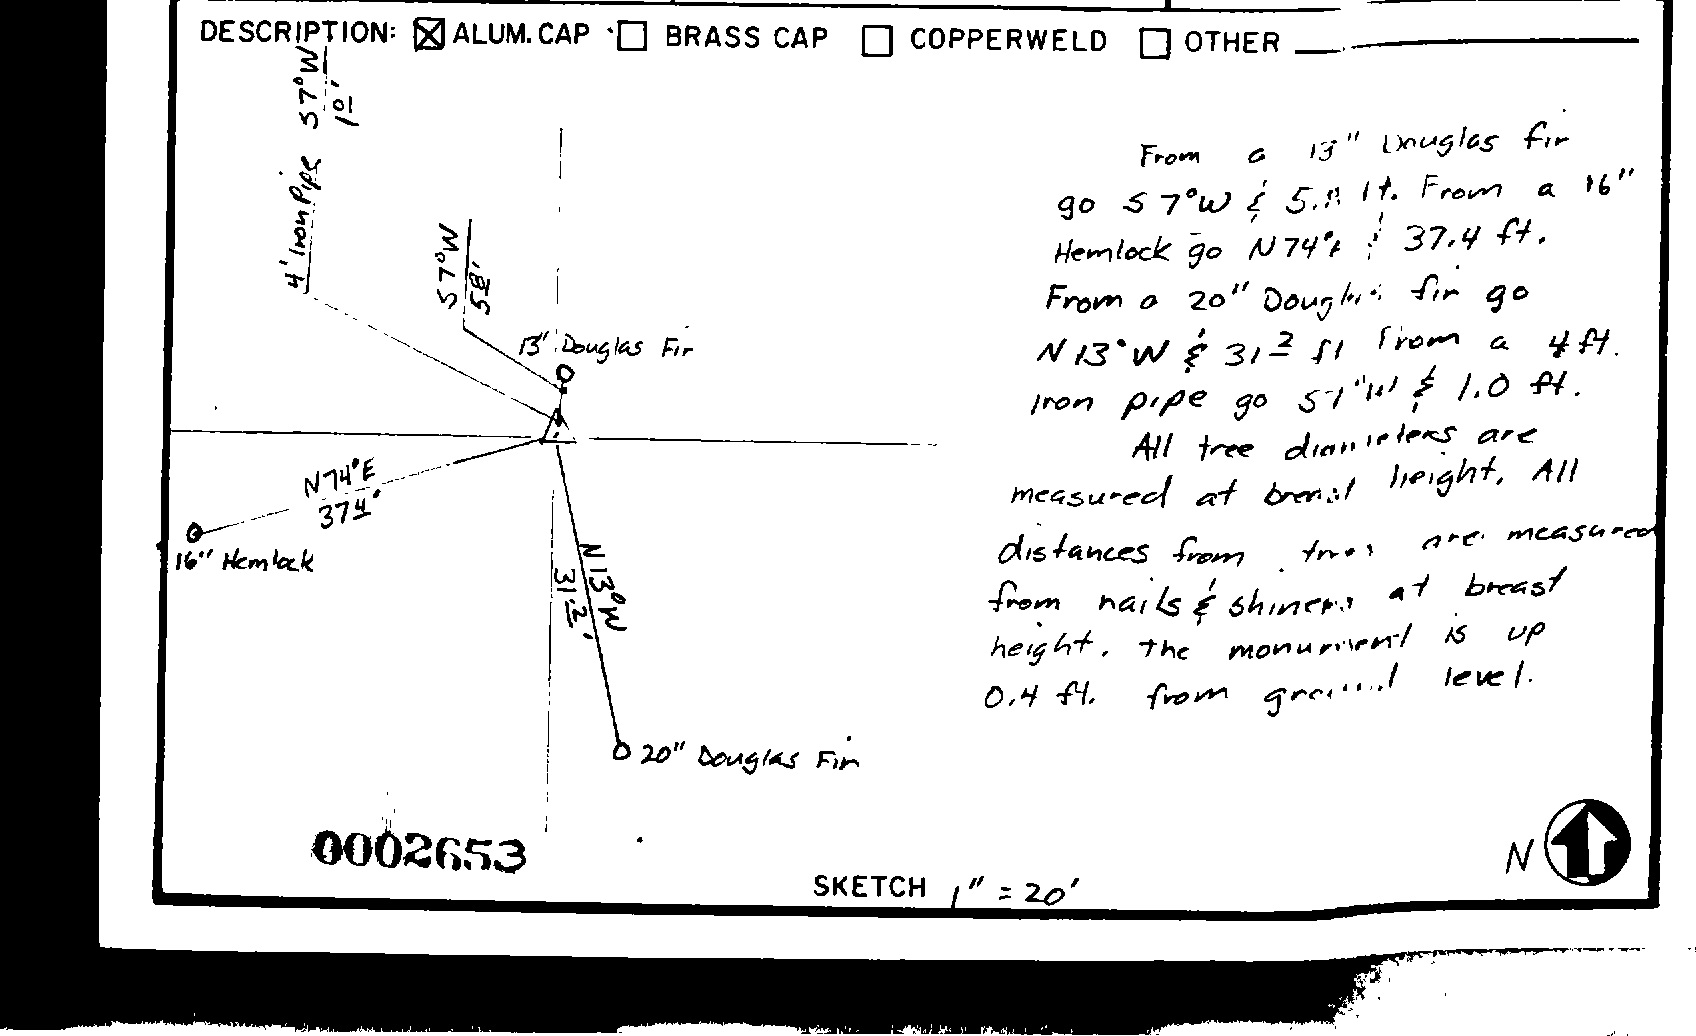 DESCRIPTION: ALUM. CAP BRASS CAP COPPERWELD OTHER
4' Iron Pipe S7°W
1.0'
S7°W
5.8'
13" Douglas Fir
N74°E
37.4'
16" Hemlock
N13°W
31.2'
20" Douglas Fir
From a 13" Douglas fir
go S 7°W & 5.8 ft. From a 16"
Hemlock go N74°E & 37.4 ft.
From a 20" Douglas fir go
N 13°W & 31.2 ft From a 4 ft.
Iron pipe go S7°W & 1.0 ft.
All tree diameters are
measured at breast height. All
distances from trees are measured
from nails & shiners at breast
height. The monument is up
0.4 ft. from ground level.
0002653
N
SKETCH 1" = 20'